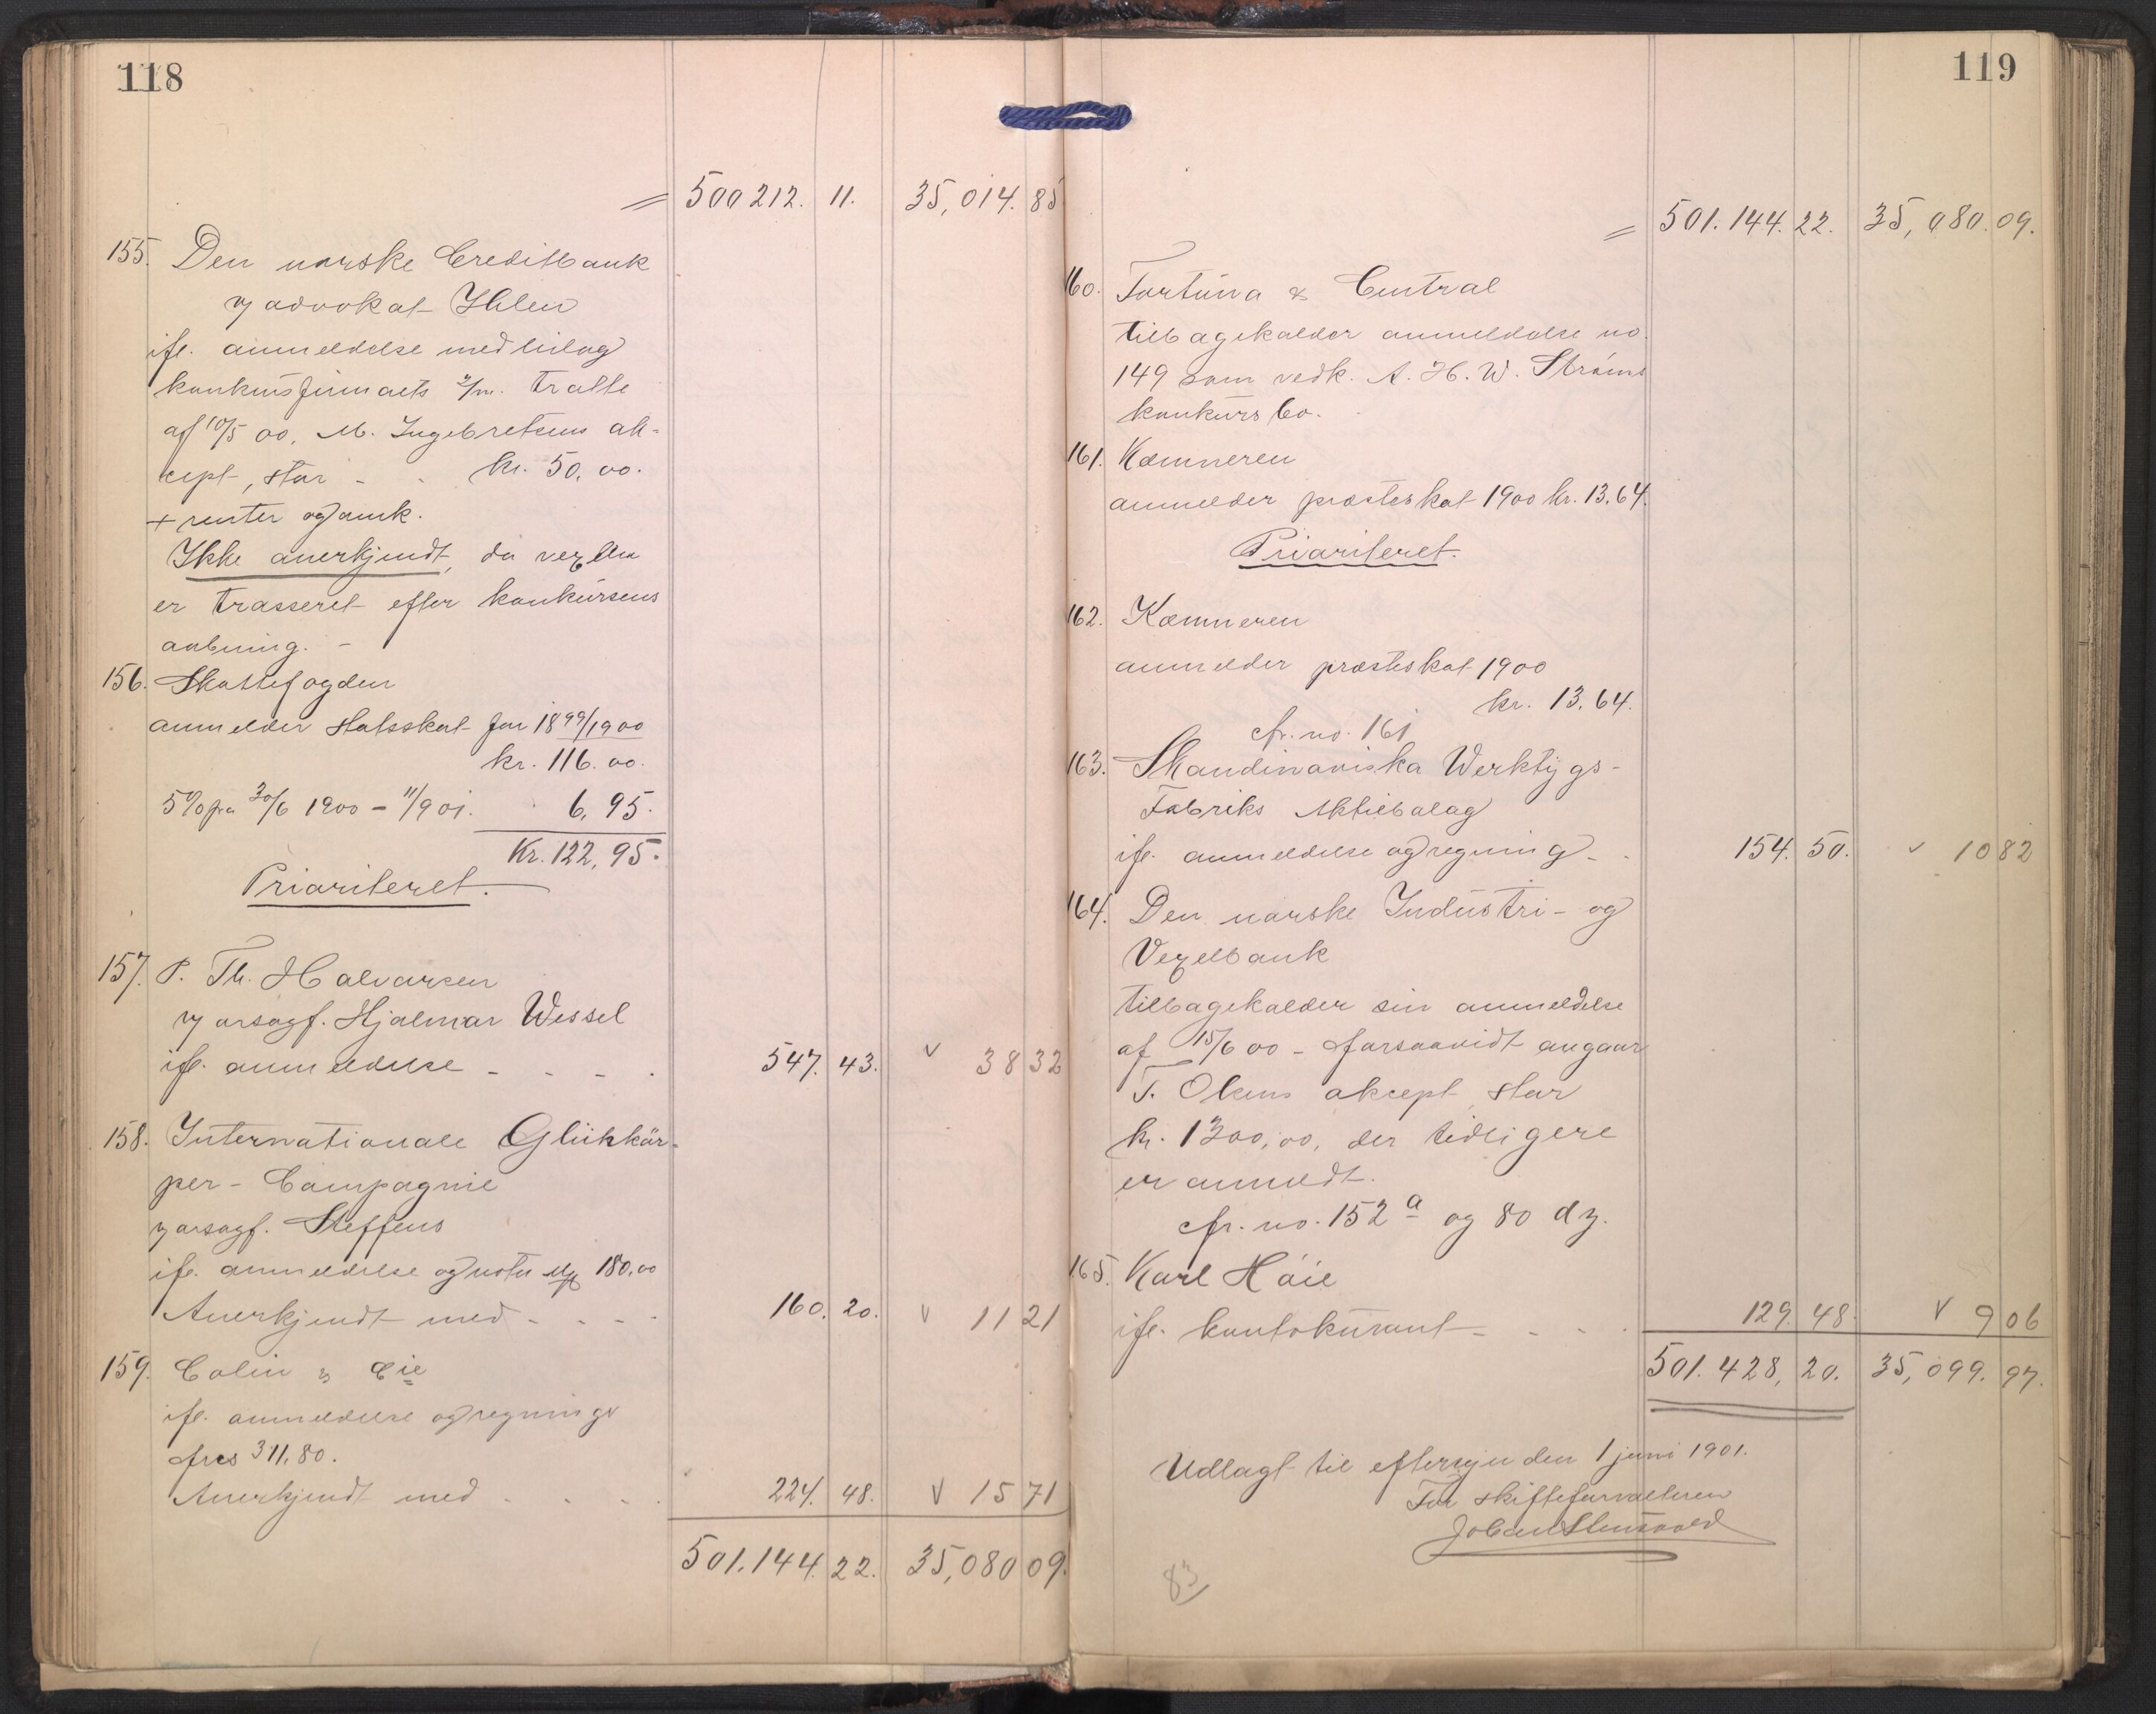 118
= 500212. 11. 35,014. 85
155. Den norske Creditbank
v/ advokat Ihlen
ifl. anmeldelse med bilag
konkursfirmaets 2/m. tratte
af 10/5 00, M. Ingebretsens ak-
cept, stor - - kr. 50,00.
+ renter og omk.
Ikke anerkjendt, da vexlen
er trasseret efter konkursens
aabning. -
156. Skattefogden
anmelder statsskat for 1899/1900
kr. 116.00.
5% fra 30/6 1900 - 11/9 01. 6,95.
Kr. 122,95.
Prioriteret.
157. P. Th. Halvorsen
v/ orsagf. Hjalmar Wessel
ifl. anmeldelse - - - - 547. 43. v 38 32
158. Internationale Glühkör-
per-Compagnie
v/ orsagf. Steffens
ifl. anmeldelse og nota 180,00
Anerkjendt med - - - - 160. 20. v 11 21
159. Colin & Cie
ifl. anmeldelse og regning
frcs 311,80.
Anerkjendt med - - - - 224. 48. v 15 71
501.144. 22. 35,080 09.
119
= 501.144. 22. 35,080. 09.
160. Fortuna & Central
tilbagekalder anmeldelse no.
149 som vedk. A. H. W. Strøms
konkursbo.
161. Kæmneren
anmelder præsteskat 1900 kr. 13.64.
Prioriteret.
162. Kæmneren
anmelder præsteskat 1900
kr. 13.64.
cfr. no. 161
163. Skandinaviska Werktygs-
Fabriks Aktiebolag
ifl. anmeldelse og regning - - 154. 50. v 10 82
164. Den norske Industri- og
Vexelbank
tilbagekalder sin anmeldelse
af 15/6 00 - forsaavidt angaar
T. Olsens akcept, stor
kr. 1300,00, der tidligere
er anmeldt.
cfr. no. 152 a og 80 dz.
165. Karl Høie
ifl. kontokurant - - - - 129. 48. v 9 06
501.428, 20. 35,099. 97.
Udlagt til eftersyn den 1 juni 1901.
For skifteforvalteren
Johan Stensaard
83